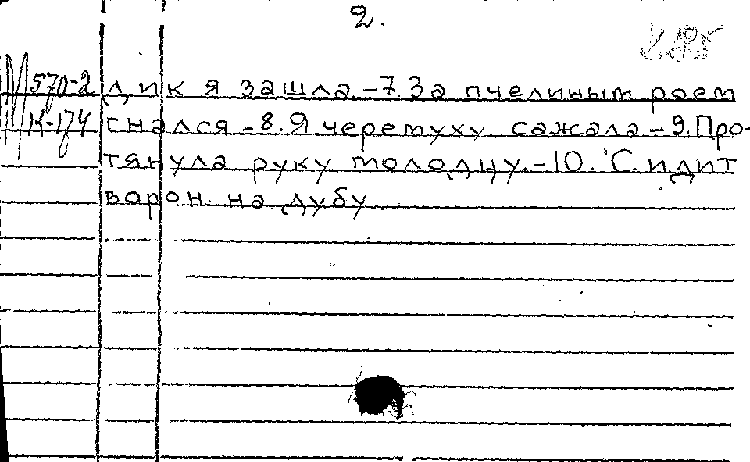 2.
570-2 дик я зашла. - 7. За пчелиным роем
К-174 гнался - 8. Я черемуху сажала - 9. Про-
тянула руку молодцу. - 10. Сидит
ворон на дубу